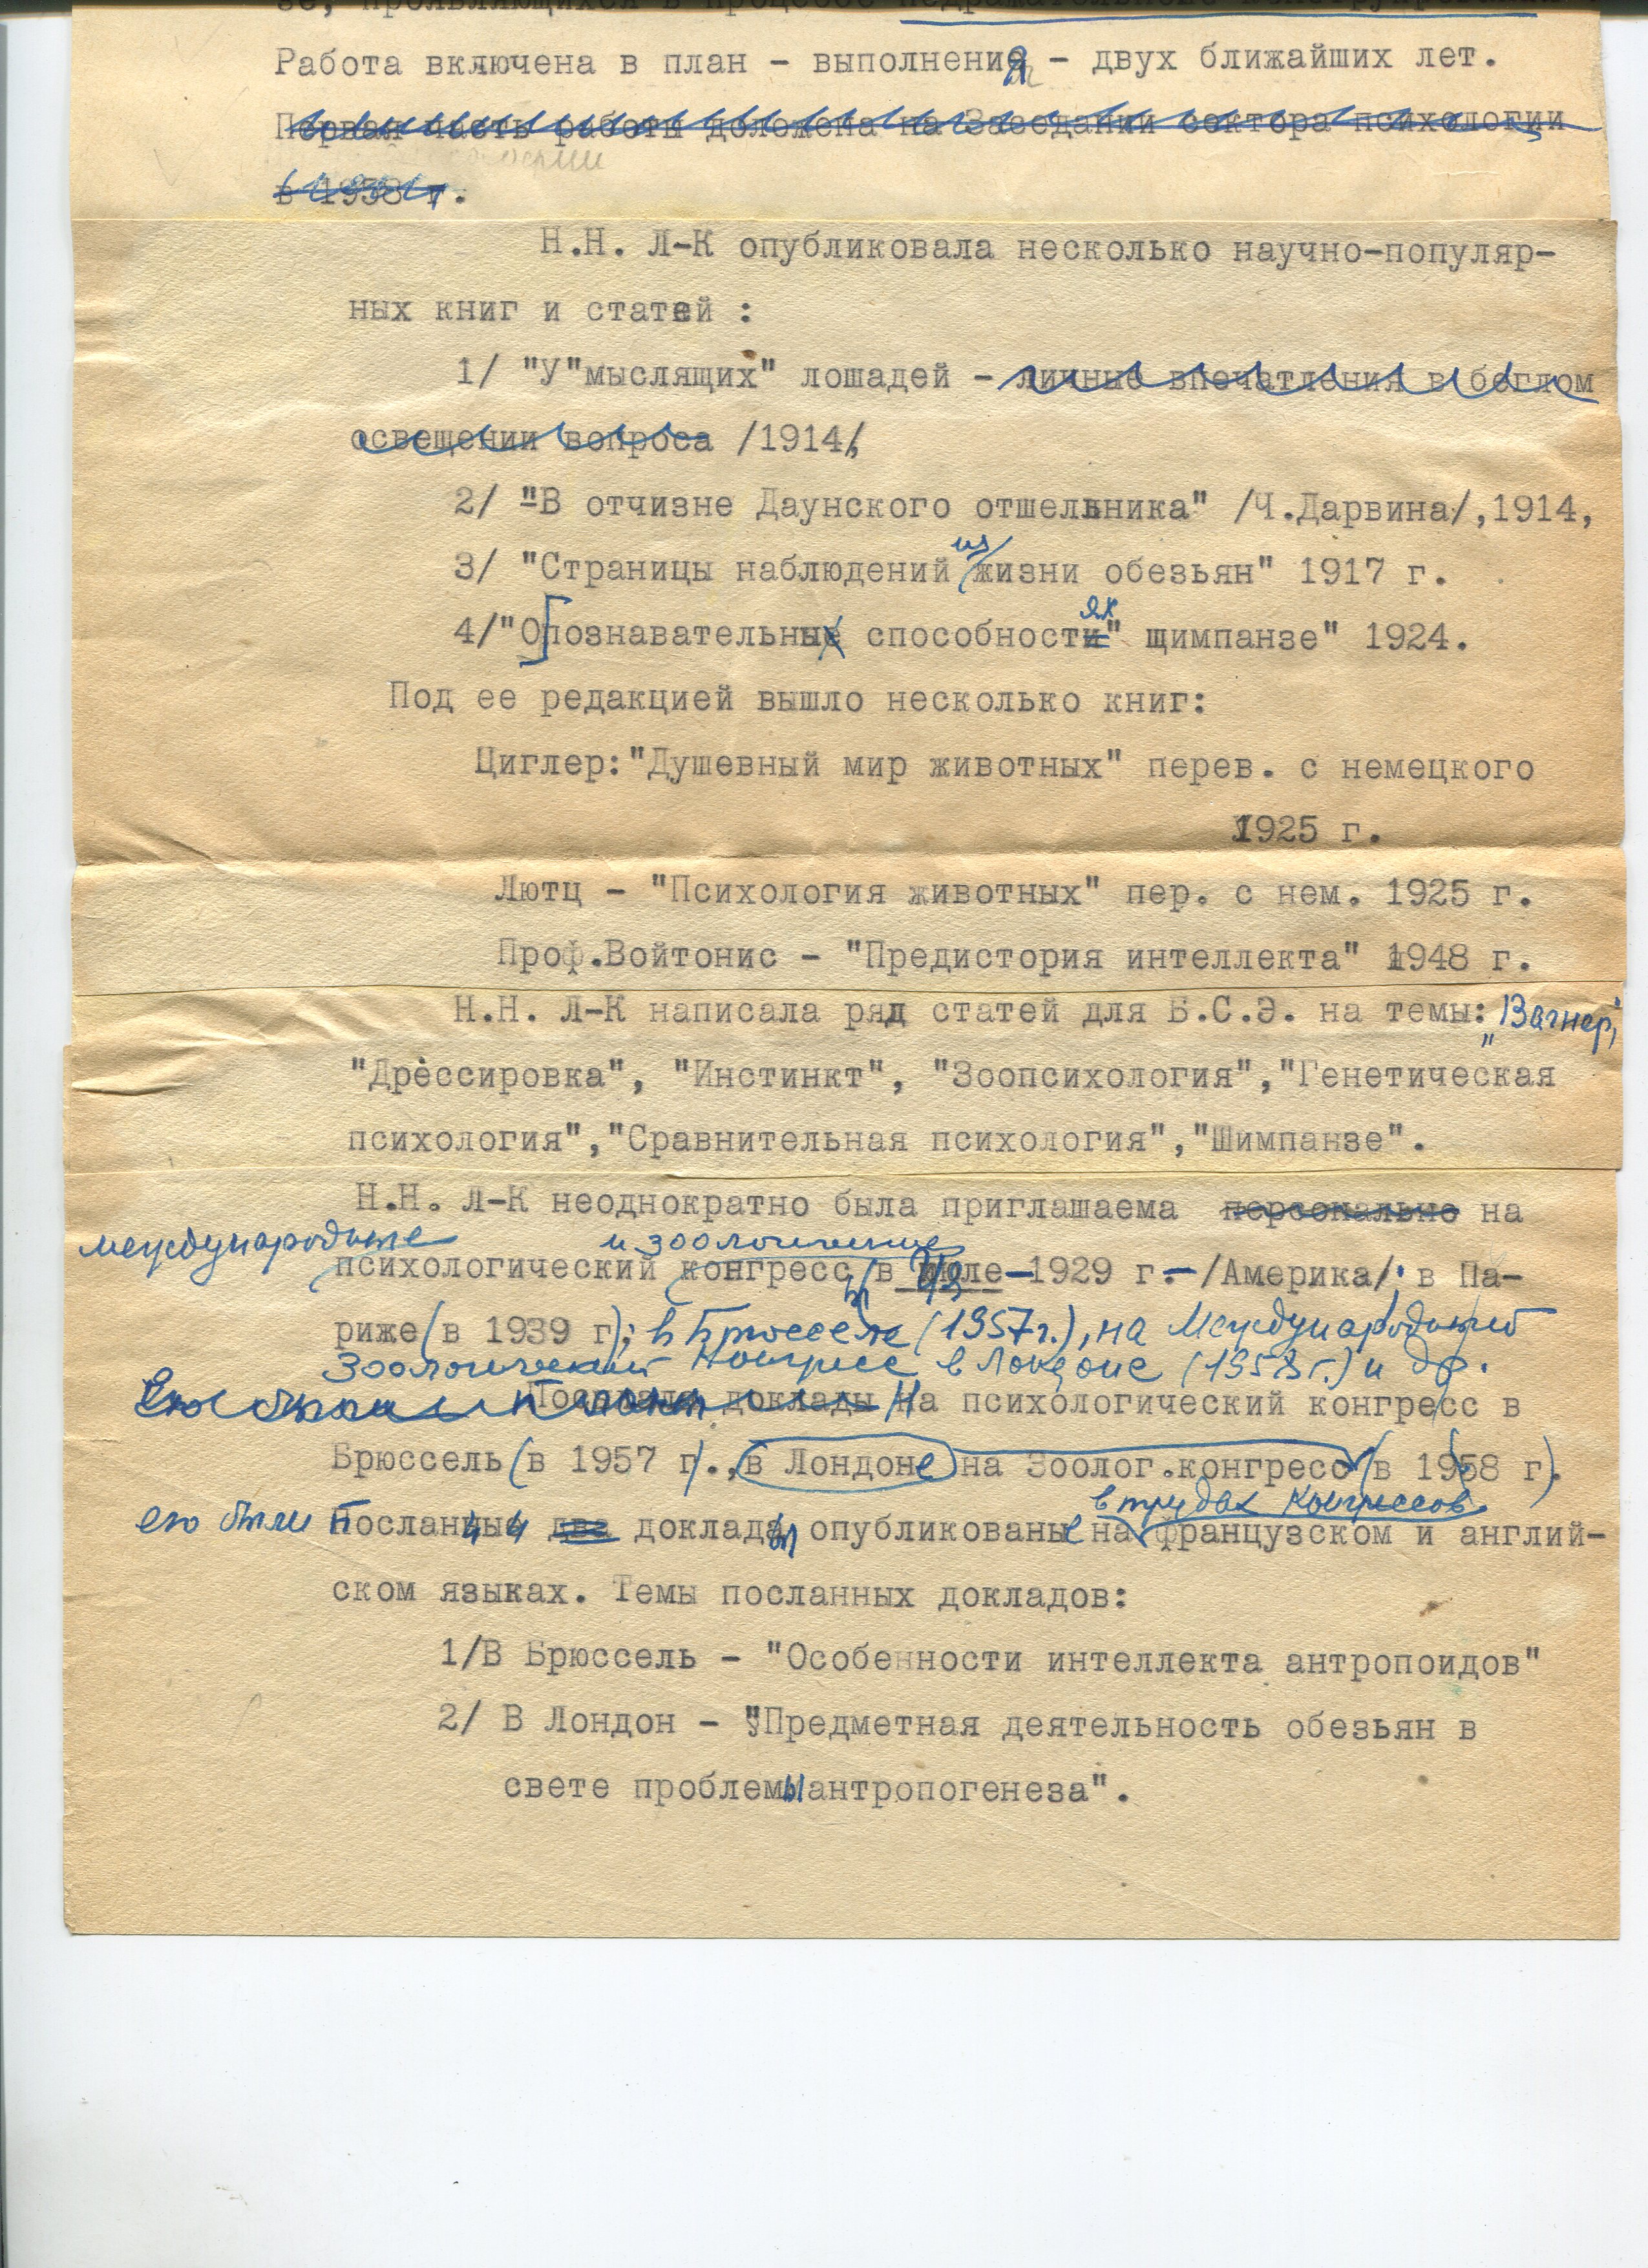 зе, проявляющихся в процессе подражательного конструирования
Работа включена в план - выполнения - двух ближайших лет.
Первая часть работы доложена на Заседании сектора психологии
в 1958 г.
Н.Н. Л-К опубликовала несколько научно-популяр-
ных книг и статей :
1/ "У"мыслящих" лошадей - личные впечатления в беглом
освещении вопроса /1914/,
2/ "В отчизне Даунского отшельника" /Ч.Дарвина/,1914,
из
3/ "Страницы наблюдений жизни обезьян" 1917 г.
ях
4/"Опознавательные способности" шимпанзе" 1924.
Под ее редакцией вышло несколько книг:
Циглер:"Душевный мир животных" перев. с немецкого
1925 г.
Лютц - "Психология животных" пер. с нем. 1925 г.
Проф.Войтонис - "Предистория интеллекта" 1948 г.
Н.Н. Л-К написала ряд статей для Б.С.Э. на темы: "Вагнер",
"Дрессировка", "Инстинкт", "Зоопсихология","Генетическая
психология","Сравнительная психология","Шимпанзе".
Н.Н. Л-К неоднократно была приглашаема персонально на
международные и зоологические
психологический конгрессы в 1929 г.- /Америка/; в Па-
риже (в 1939 г); в Брюсселе (1957г.), на Международный
Зоологический Конгресс в Лондоне (1958 г.) и др.
Ею были Посланы доклады На психологический конгресс в
Брюссель (в 1957 г)., в Лондоне на Зоолог.конгресс (в 1958 г).
в трудах Конгрессов.
ею были Посланные два доклады опубликованы на французском и англий-
ском языках. Темы посланных докладов:
1/В Брюссель - "Особенности интеллекта антропоидов"
2/ В Лондон - "Предметная деятельность обезьян в
свете проблемы антропогенеза".